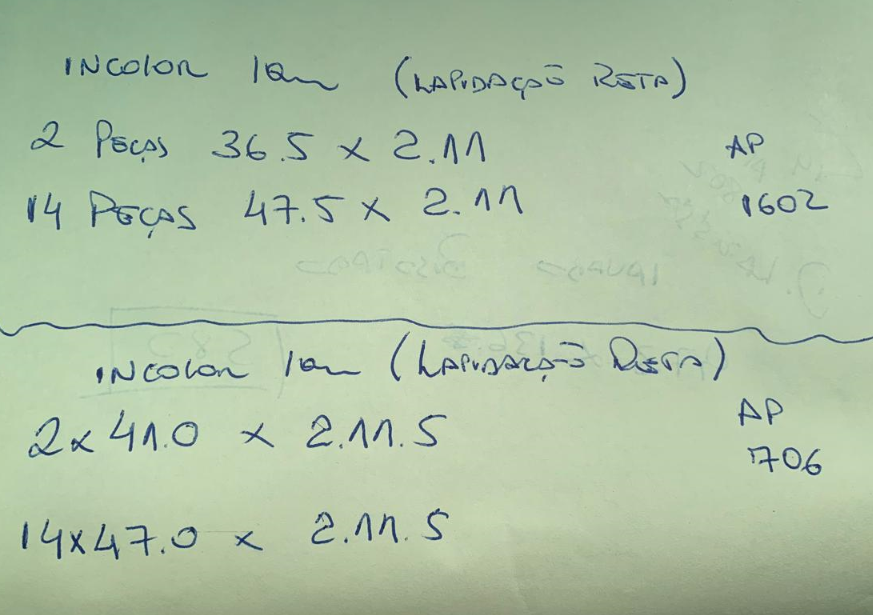 INCOLOR 10m (LAPIDAÇÃO RETA)
2 PEÇAS 36.5 x 2.11
AP
14 PEÇAS 47.5 x 2.11
1602
INCOLOR 10m (LAPIDAÇÃO RETA)
AP
2 x 41.0 x 2.11.5
706
14 x 47.0 x 2.11.5